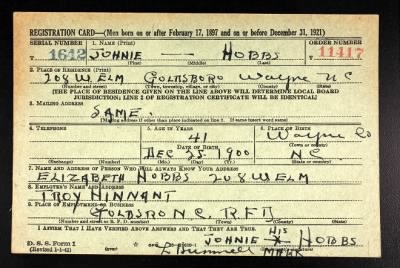 REGISTRATION CARD—(Men born on or after February 17, 1897 and on or before December 31, 1921)
SERIAL NUMBER 1. NAME (Print) ORDER NUMBER
1642 JOHNIE — HOBBS 11417
(First) (Middle) (Last)
2. PLACE OF RESIDENCE (Print)
208 W. ELM GOLDSBORO Wayne N C
(Number and street) (Town, township, village, or city) (County) (State)
[THE PLACE OF RESIDENCE GIVEN ON THE LINE ABOVE WILL DETERMINE LOCAL BOARD
JURISDICTION; LINE 2 OF REGISTRATION CERTIFICATE WILL BE IDENTICAL]
3. MAILING ADDRESS
SAME.
[Mailing address if other than place indicated on line 2. If same insert word same]
4. TELEPHONE 5. AGE IN YEARS 6. PLACE OF BIRTH
41 Wayne Co
DATE OF BIRTH (Town or county)
DEC 25. 1900 N.C.
(Exchange) (Number) (Mo.) (Day) (Yr.) (State or country)
7. NAME AND ADDRESS OF PERSON WHO WILL ALWAYS KNOW YOUR ADDRESS
ELIZABETH HOBBS 208 W ELM
8. EMPLOYER'S NAME AND ADDRESS
TROY HINNANT
9. PLACE OF EMPLOYMENT OR BUSINESS
GOLDSBRO N.C. R.F.D
(Number and street or R. F. D. number) (Town) (County) (State)
I AFFIRM THAT I HAVE VERIFIED ABOVE ANSWERS AND THAT THEY ARE TRUE.
HIS
D. S. S. Form 1 JOHNIE X HOBBS
(Revised 1-1-42) MARK